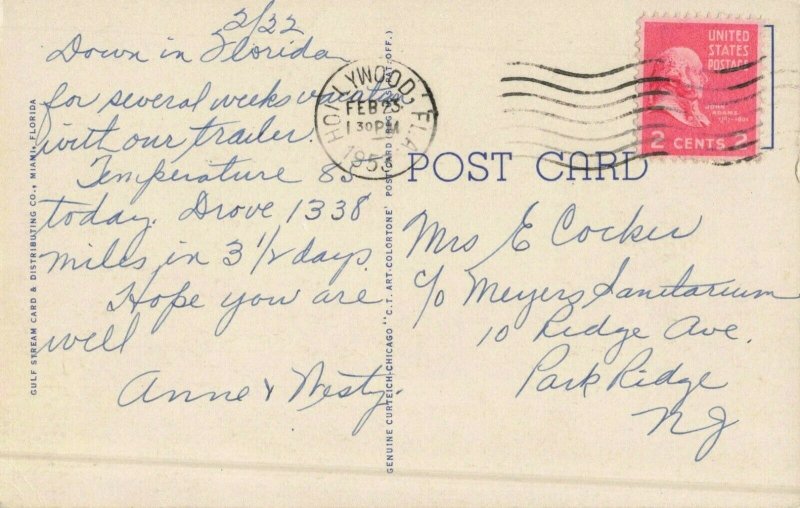 2/22
Down in Florida
for several weeks vacation
with our trailer.
Temperature 85
today. Drove 1338
miles in 3 1/2 days.
Hope you are
well
Anne & Westy.
GULF STREAM CARD & DISTRIBUTING CO., MIAMI, FLORIDA
GENUINE CURTEICH-CHICAGO "C.T. ART-COLORTONE" POST CARD (REG. U.S. PAT. OFF.)
HOLLYWOOD, FLA.
FEB 23
1 30 PM
UNITED
STATES
POSTAGE
JOHN
ADAMS
2 CENTS 2
POST CARD
Mrs E Cocker
c/o Meyers Sanitarium
10 Ridge Ave.
Park Ridge
NJ